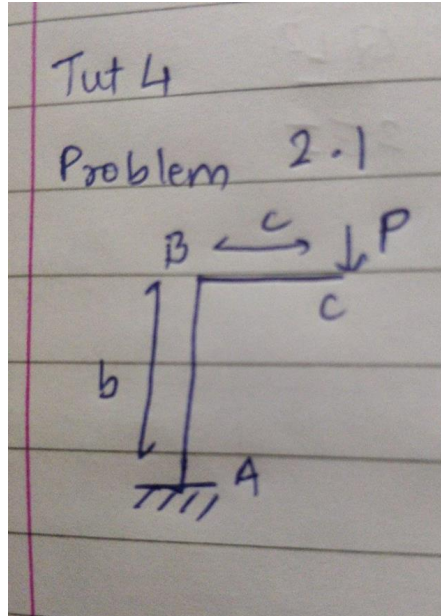 Tut 4
Problem 2.1
c
B
P
C
b
A